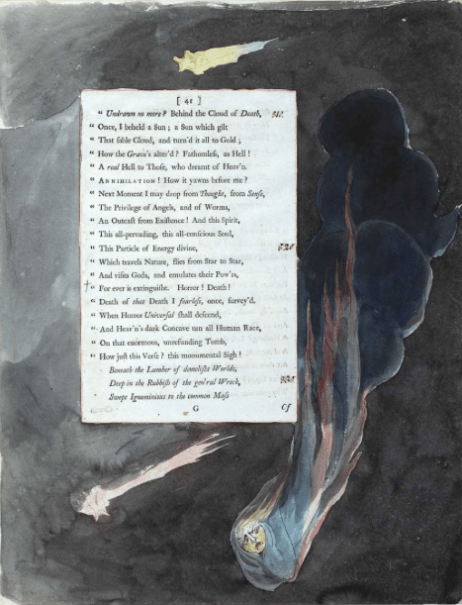 [ 41 ]
" Undrawn no more? Behind the Cloud of Death,
" Once, I beheld a Sun; a Sun which gilt
" That sable Cloud, and turn'd it all to Gold;
" How the Grave's alter'd? Fathomless, as Hell!
" A real Hell to Those, who dreamt of Heav'n.
" ANNIHILATION! How it yawns before me?
" Next Moment I may drop from Thought, from Sense,
" The Privilege of Angels, and of Worms,
" An Outcast from Existence! And this Spirit,
" This all-pervading, this all-conscious Soul,
" This Particle of Energy divine, 820
" Which travels Nature, flies from Star to Star,
" And visits Gods, and emulates their Pow'rs,
" For ever is extinguisht. Horror! Death!
" Death of that Death I fearless, once, survey'd.
" When Horror Universal shall descend,
" And Heav'n's dark Concave urn all Human Race,
" On that enormous, unrefunding Tomb,
" How just this Verse? this monumental Sigh!
Beneath the Lumber of demolisht Worlds,
Deep in the Rubbish of the gen'ral Wreck,
Swept Ignominious to the common Mass
G Of